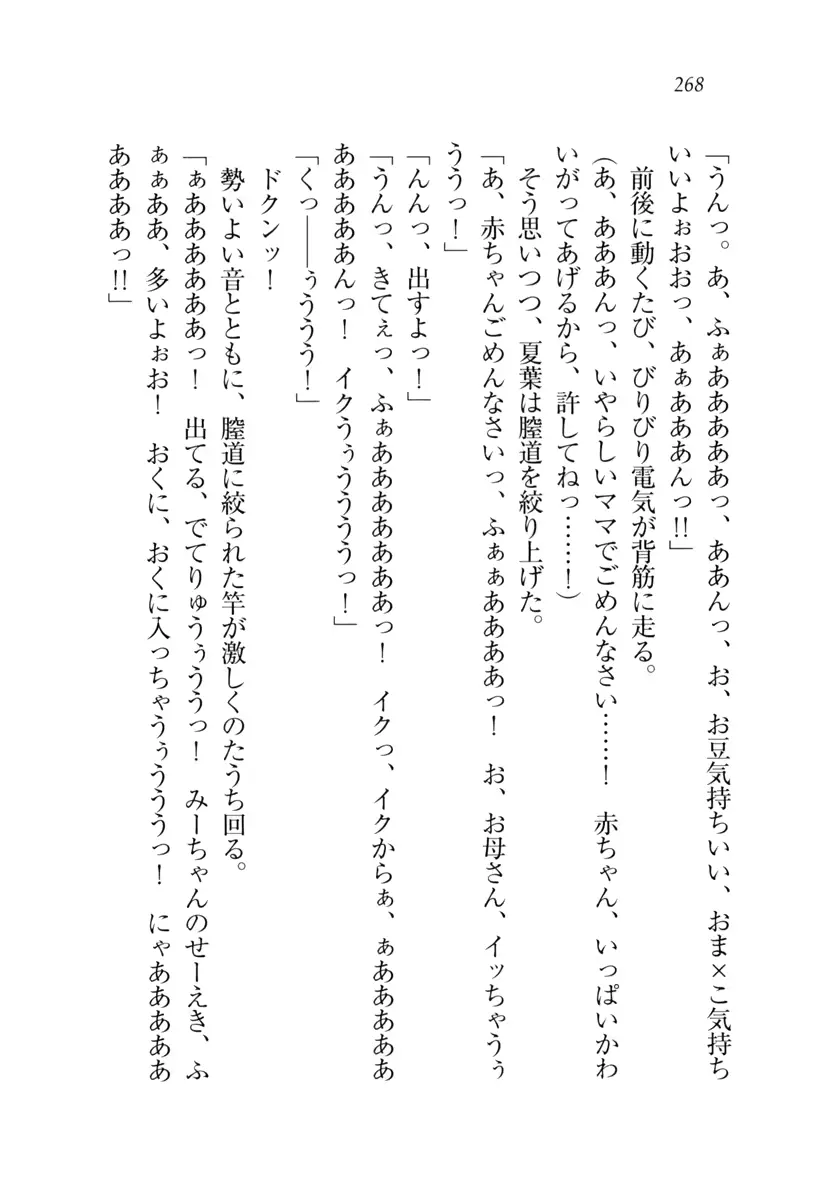 268
「うんっ。あ、ふぁあああああっ、ああんっ、お、お豆気持ちいい、おま×こ気持ち
いいよぉおおっ、あぁあああんっ!!」
前後に動くたび、びりびり電気が背筋に走る。
(あ、あああんっ、いやらしいママでごめんなさい……！　赤ちゃん、いっぱいかわ
いがってあげるから、許してねっ……！)
そう思いつつ、夏葉は膣道を絞り上げた。
「あ、赤ちゃんごめんなさいっ、ふぁぁああああっ！　お、お母さん、イッちゃうぅ
ううっ！」
「んんっ、出すよっ！」
「うんっ、きてぇっ、ふぁあああああああっ！　イクっ、イクからぁ、ぁああああああ
ああああああんっ！　イクうぅうううっ！」
「くっ――ぅううう！」
ドクンッ！
勢いよい音とともに、膣道に絞られた竿が激しくのたうち回る。
「ぁあああああああっ！　出てる、でてりゅうぅううっ！　みーちゃんのせーえき、ふ
ぁぁああ、多いよぉお！　おくに、おくに入っちゃうぅうううっ！　にゃああああああ
あああああっ!!」